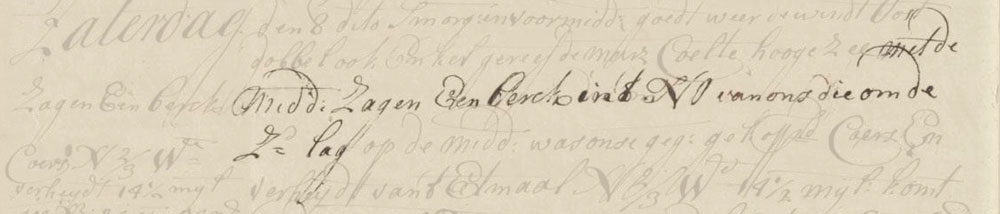 Zaterdag den 8 dito Smorg: en voormidd: goedt weer de windt Oost
dobbel ook Enkel gereefde marz Coelte hooge Zee met de
Zagen Een berck Midd: Zagen Een berck in't NO van ons die om de
Zd lag op de midd: was onse geg: gekopple Coers En
Coers N 2/3 Wt
verheydt 14 1/2 myl verheydt van't Etmaal N 2/3 Wt 14 1/2 myl: komt